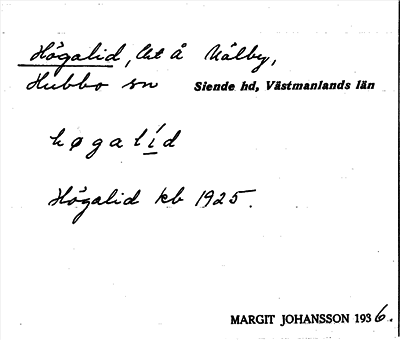 Högalid, lht å Målby,
Hubbo sn Siende hd, Västmanlands län
høgalíd
Högalid kb 1925.
MARGIT JOHANSSON 1936.